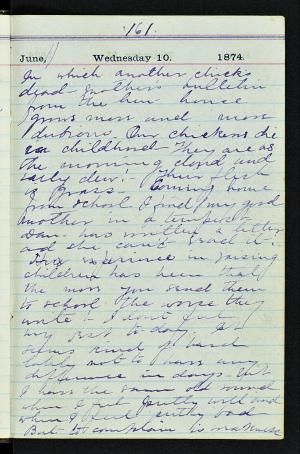 161.
June, 11 Wednesday 10. 1874.
In which another chicks
dead. Mother's bulletin
from the hen house
grows more and more
dubious. Our chickens die
in childhood. They are as
the morning cloud and
early dew! Their flesh
is grass. Coming home
from school I find my good
mother in a tempest
Dan has written a letter
and she can't read it.
experience in raising
children has been that
the more you send them
to school the worse they
write! I don't feel
my best to-day. It
seems kind of hard
not to have any
difference in days. But
I have the same old round
when I feel pretty well and
when I feel pretty bad
But to complain is weakness